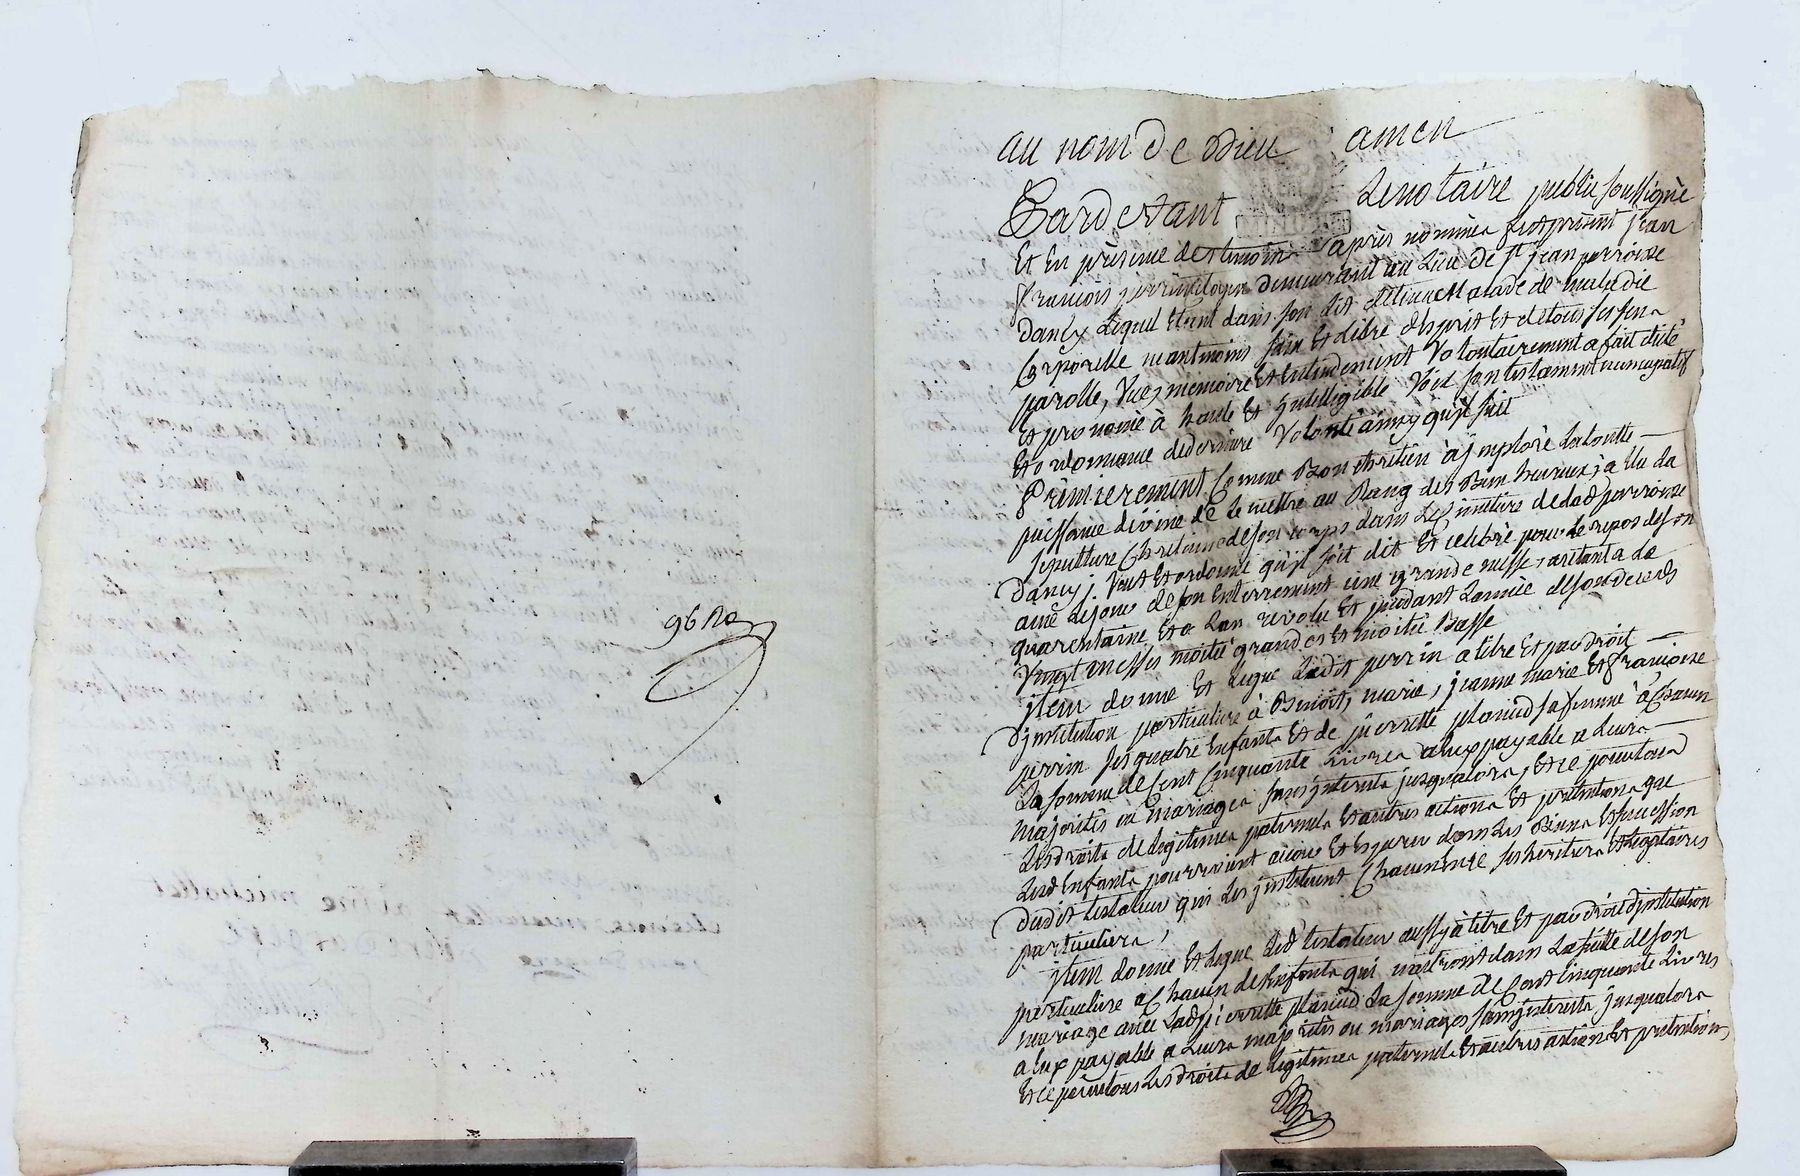 96 Ro
au nom de Dieu amen
Pardevant Le notaire public soussigné
Et En présence des temoins après nommés fut présent jean
françois perrin demeurant au Lieu de St jean parroisse
dancy Lequel Etant dans son Lit detenu Malade de maladie
Corporelle neantmoins sain Et Libre desprit Et de tous ses sens
parolle, vue, memoire Et Entendement Volontairement a fait dicté
Et prononcé à haute Et jntelligible Voix son testament nuncupatif
Et ordonnance de derniere Volonté ainsy quil suit
Prèmierement Comme Bon chretien à jmploré La toutte
puissance divine de Le mettre au Rang des Bien heureux, a Elu La
sepulture Chretienne de son corps dans Le Cimitiere de lad parroisse
dancy. Veut Et ordonne qu'jl soit dit Et célébré pour Le repos de son
ame Le jour de son Enterrement une grande messe, autant a La
quarentaine Et a Lan revolu Et pendant Lannée de son deceds
Vingt messes moitié grandes Et moitié Basse
jtem donne Et Legue Ledit perrin a titre Et par droit
Djnstitution particuliere à Benoit, marie, jeanne marie Et françoise
perrin ses quatre Enfants Et de pierrette planud sa femme à Chacun
La somme de Cent Cinquante Livres a Eux payable a Leurs
majorités ou mariages sans jnterets jusqualors, Et ce pour tous
Les droits de Legitimes paternels Et autres actions Et pretentions que
Lesd Enfants pourroient avoir Et Esperer dans Les Biens Et succession
dudit testateur qui Les jnstituent Chacun ses heritiers Et Legataires
particuliers,
jtem donne Et Legue Led testateur aussy à titre Et par droit djnstitution
particuliere a Chacun des Enfants qui naitront dans La suitte de son
mariage avec Lad pierrette planud La somme de Cent Cinquante Livres
a Eux payable a Leurs majorités ou mariages sans jnterets jusqualors
Et ce pour tous Les droits de Legitimes paternels Et autres actions Et pretentions